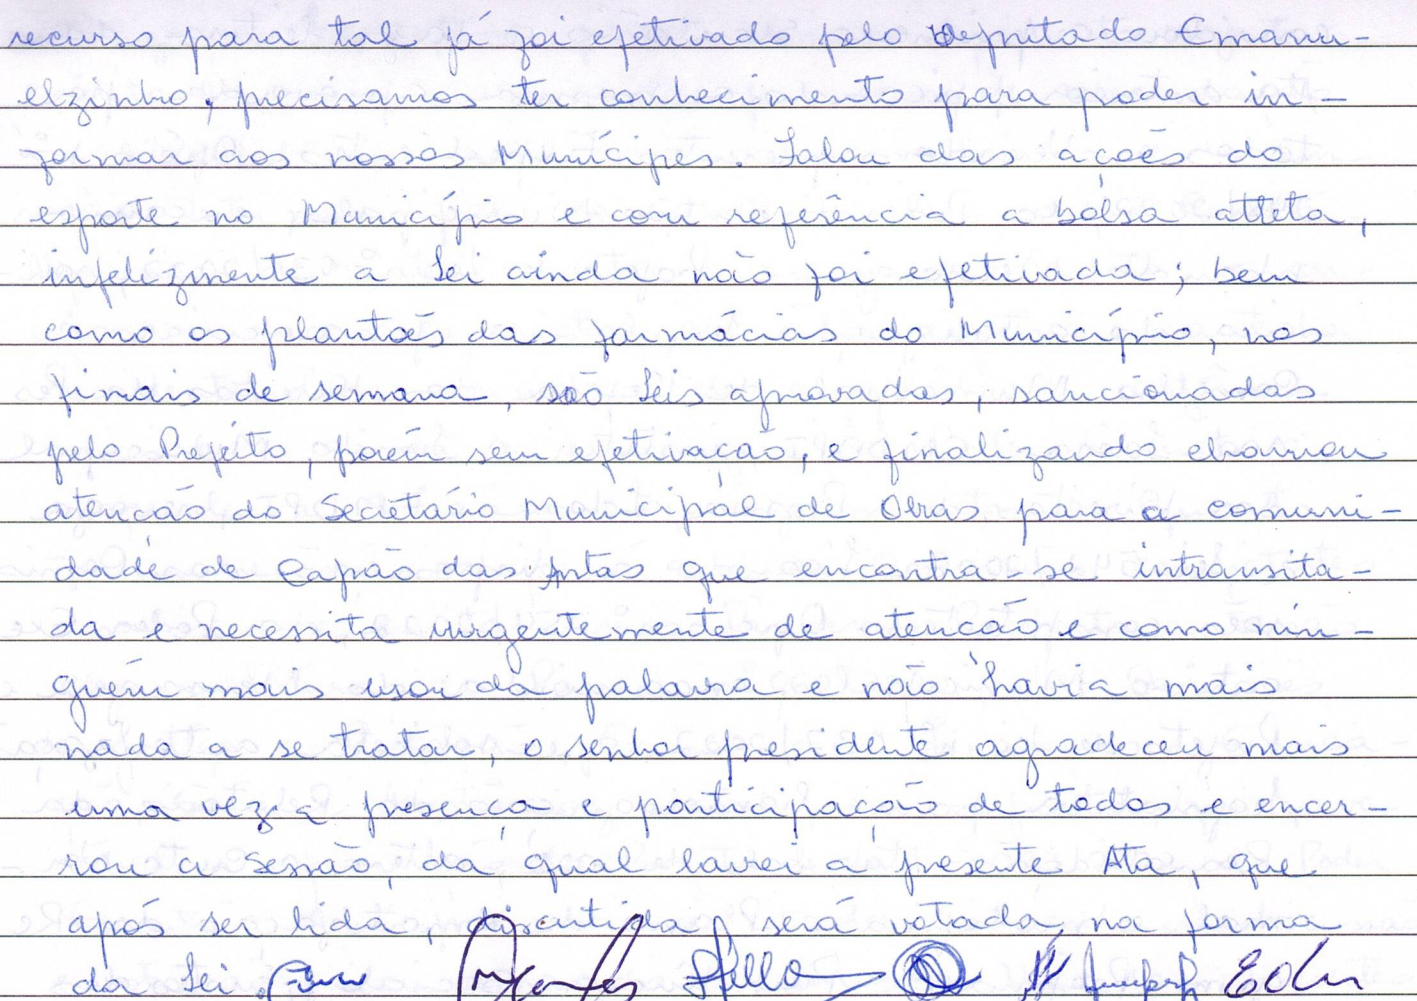 recurso para tal já foi efetivado pelo deputado Emanu-
elzinho, precisamos ter conhecimento para poder in-
formar aos nossos Munícipes. Falou das ações do
esporte no Município e com referência a bolsa atleta,
infelizmente a Lei ainda não foi efetivada; bem
como os plantões das farmácias do Município, nos
finais de semana, são Leis aprovadas, sancionadas
pelo Prefeito, porém sem efetivação, e finalizando chamou
atenção do Secretário Municipal de Obras para a comuni-
dade de Capão das Antas que encontra-se intransita-
da e necessita urgentemente de atenção e como nin-
guém mais usou da palavra e não havia mais
nada a se tratar, o senhor presidente agradeceu mais
uma vez a presença e participação de todos e encer-
rou a sessão, da qual lavrei a presente Ata, que
após ser lida, discutida será votada na forma
da Lei.